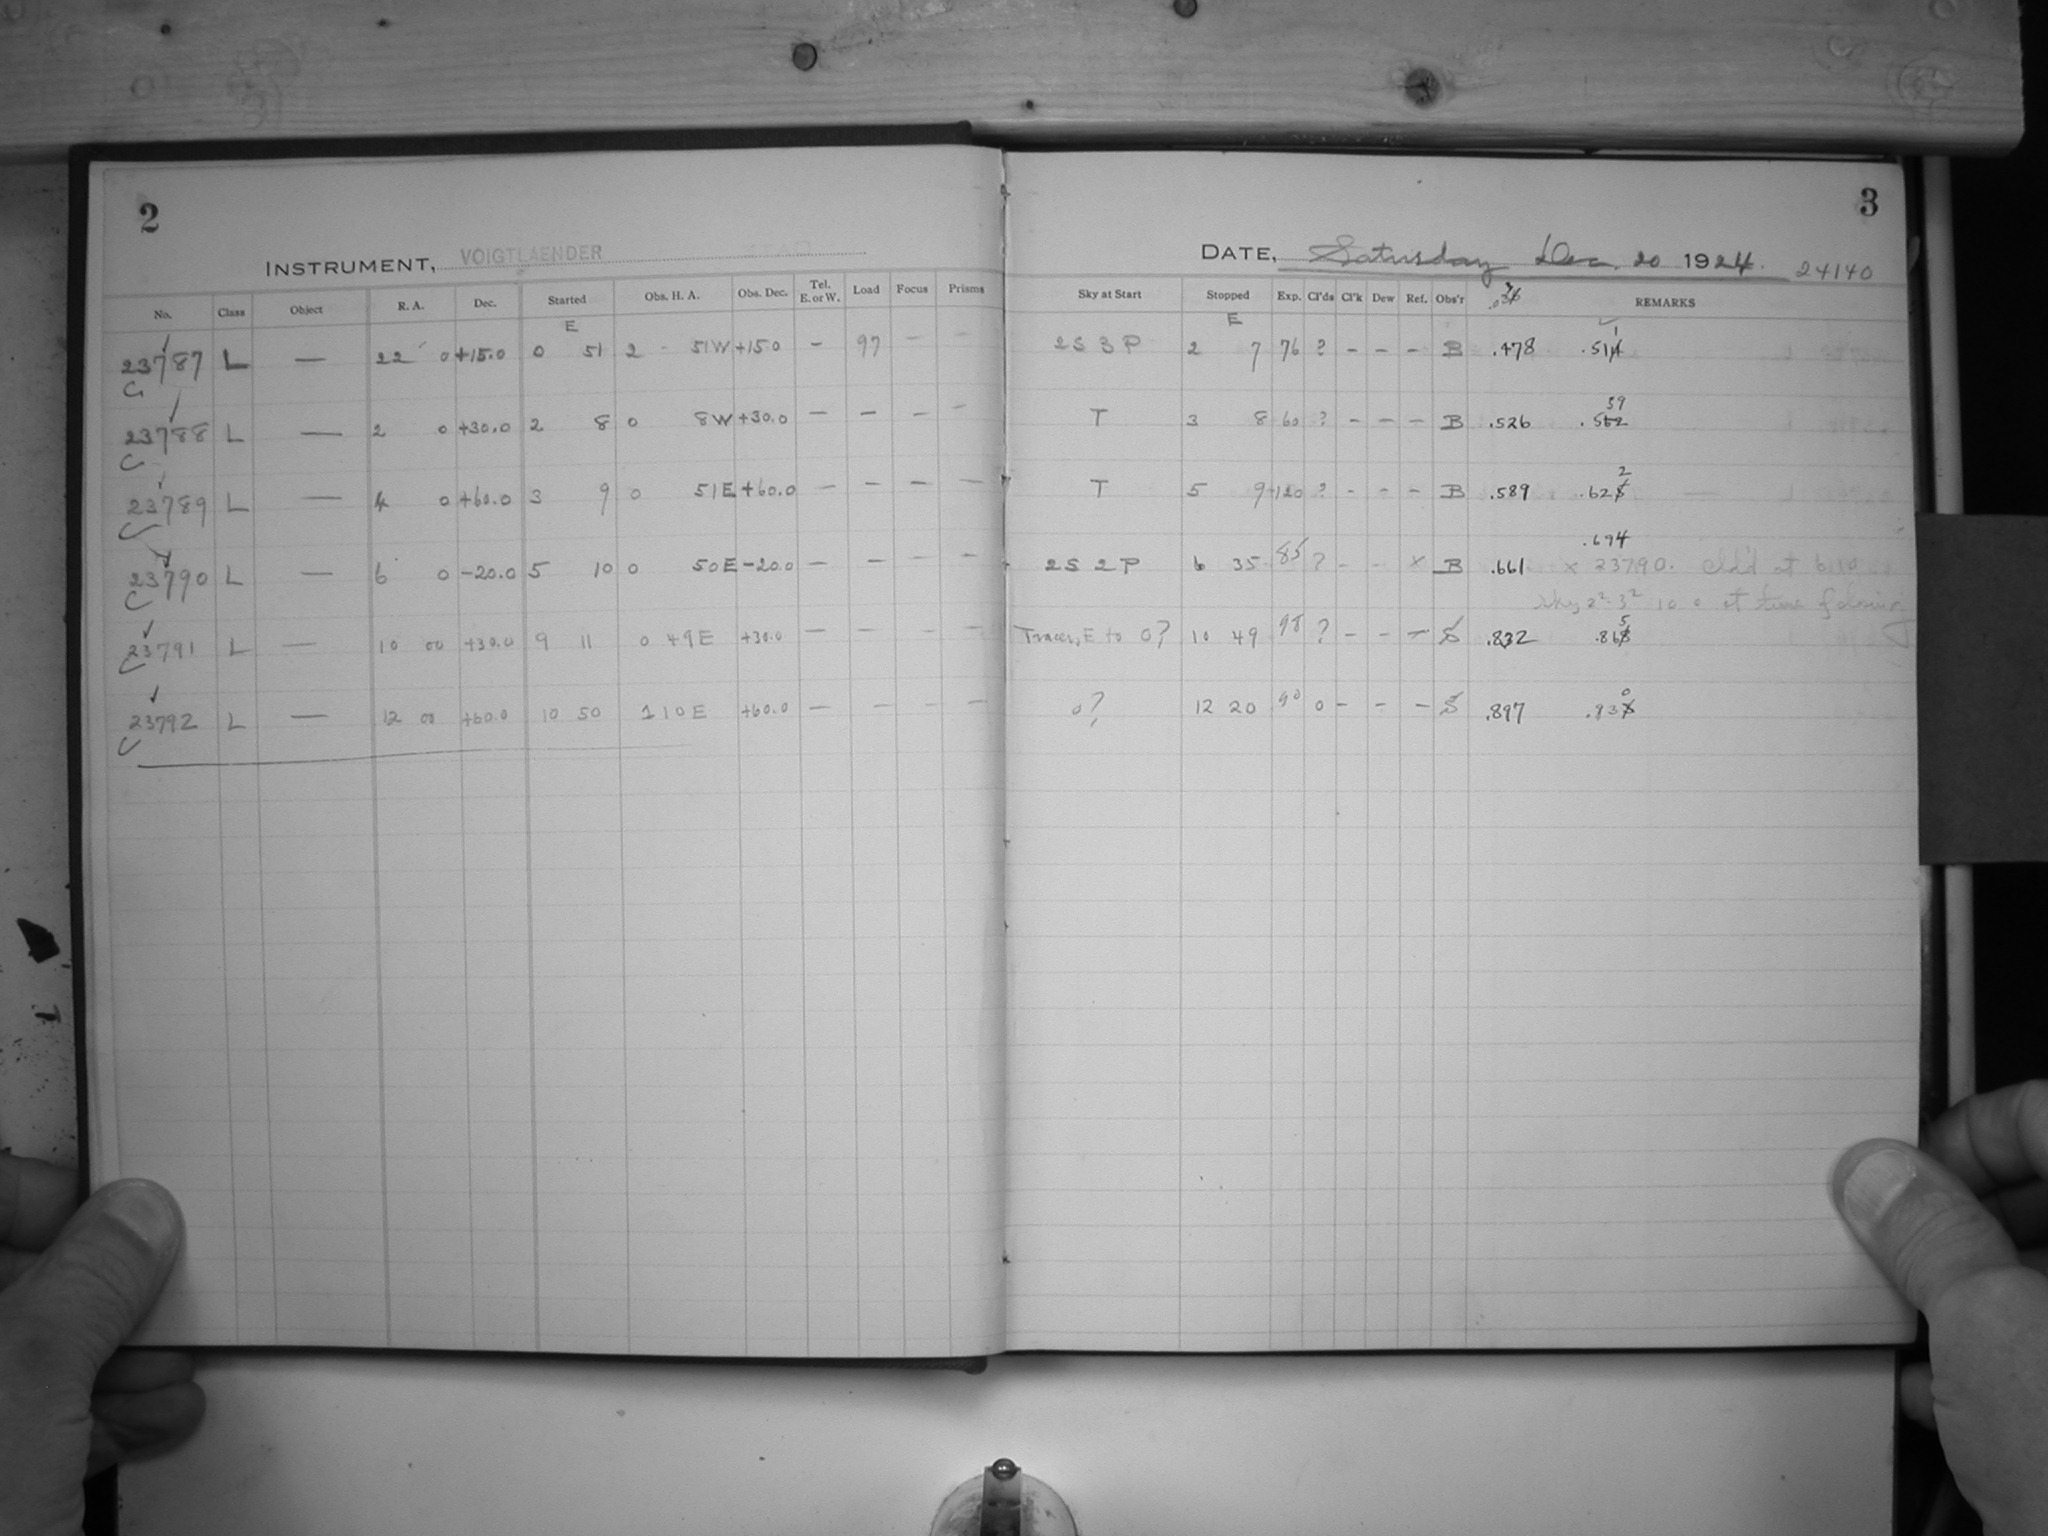 2
INSTRUMENT, VOIGTLAENDER
No. Class Object R. A. Dec. Started Obs. H. A. Obs. Dec. Tel. E. or W. Load Focus Prisms
E
23787 L — 22 0 +15.0 0 51 2 51W +15.0 — 97 — —
C
23788 L — 2 0 +30.0 2 8 0 8W +30.0 — — — —
C
23789 L — 4 0 +60.0 3 9 0 51E +60.0 — — — —
C
23790 L — 6 0 -20.0 5 10 0 50E -20.0 — — — —
C
23791 L — 10 00 +30.0 9 11 0 49E +30.0 — — — —
C
23792 L — 12 00 +60.0 10 50 1 10E +60.0 — — — —
C
3
DATE, Saturday Dec. 20 1924. 24140
Sky at Start Stopped Exp. Cl'ds Cl'k Dew Ref. Obs'r REMARKS
E
2S 3P 2 7 76 ? - - - B .478 .511
T 3 8 60 ? - - - B .526
59
.562
T 5 9 120 ? - - - B .589 .622
.694
2S 2P 6 35 85 ? - - x B .661 x 23790. Cl'd at 6 10
Sky 2²-3² 10 0 at time of closing
Traces, E to 0? 10 49 98 ? - - - S .832 .865
0? 12 20 90 0 - - - S .897 .930